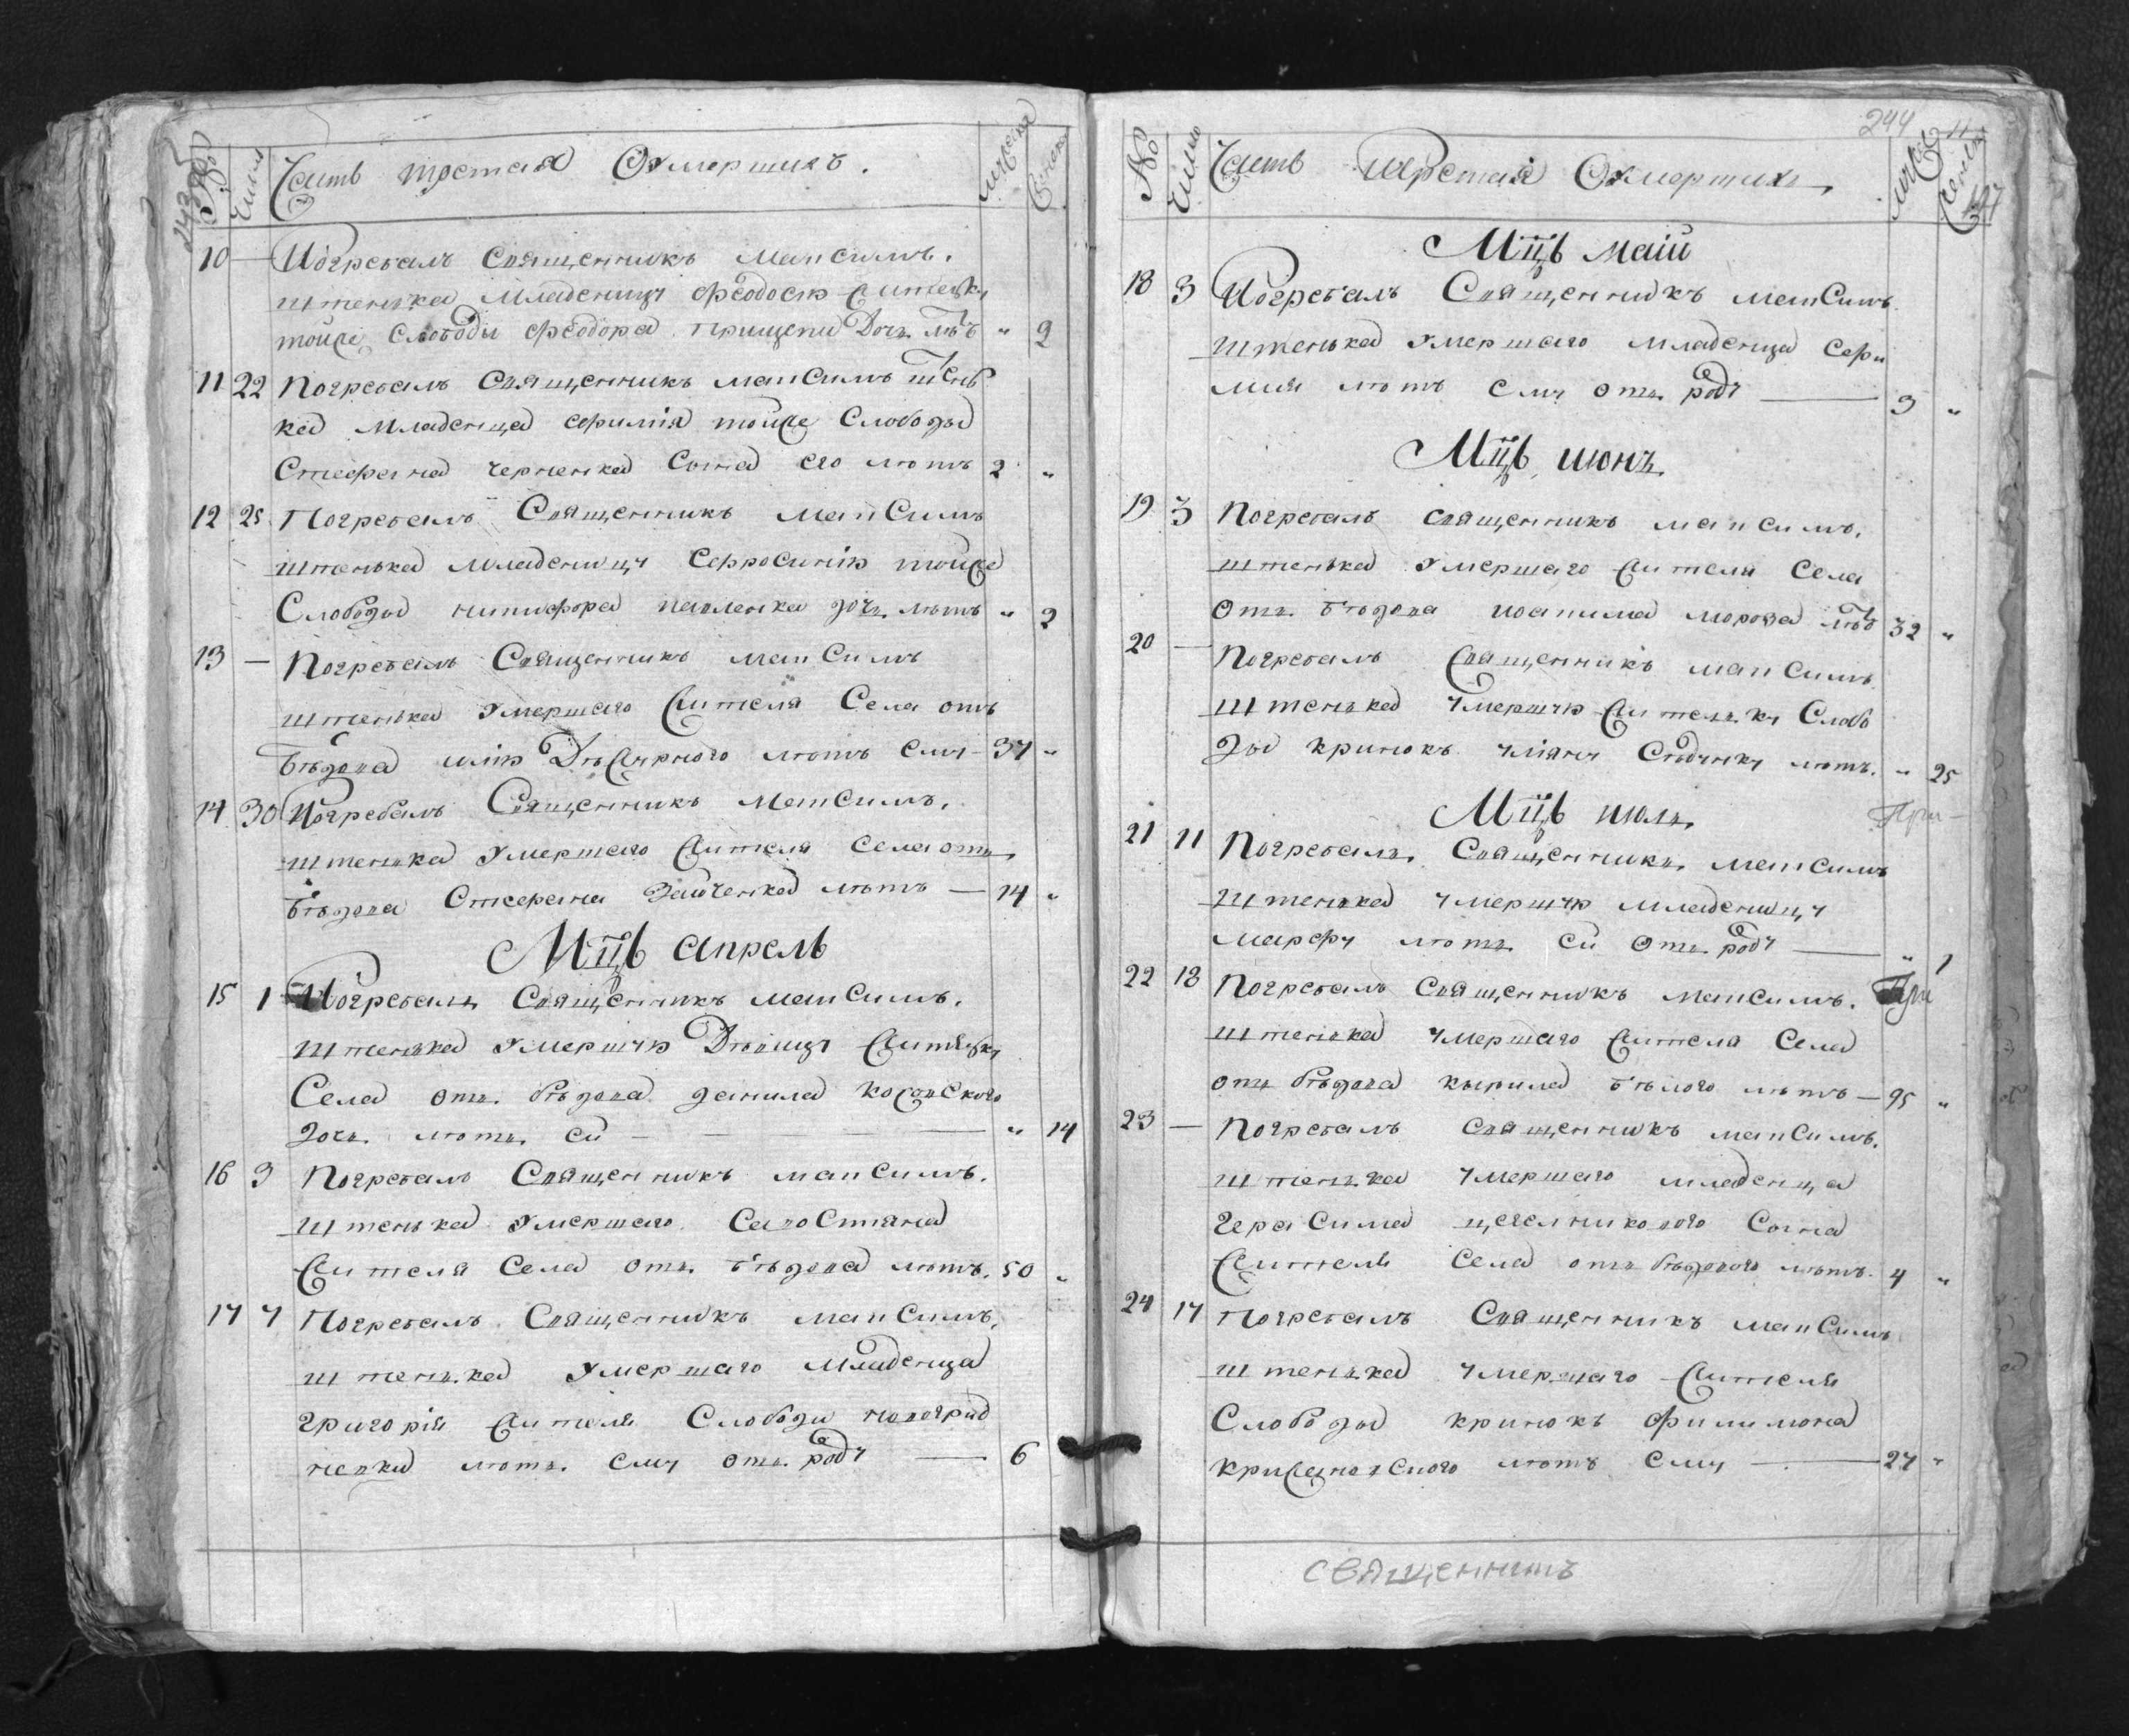 Часть третая Оумершихъ.
мужеска
женска
число
10 — Погребалъ Священникъ Максимъ
Штенька младеницу Феодосію жителку
тойже Слободы Феодора Прищепи дочь лѣтъ " 2
11 22 Погребалъ Священникъ Максимъ Штень
ка младенца Ефимія тойже Слободы
Стефана Черненка Сына его лѣтъ 2 "
12 25 Погребалъ Священникъ Максимъ
Штенька младеницу Ефросинію тойже
Слободы Никифора Павленка дочь лѣтъ " 2
13 — Погребалъ Священникъ Максимъ
Штенька умершаго жителя Села отъ
Бѣдова Илію лѣтъ ему 37 "
14 30 Погребалъ Священникъ Максимъ
Штенька умершаго жителя Села отъ
Бѣдова Стефана Зайченка лѣтъ — 14 "
Мцъ Апрель
15 1 Погребалъ Священникъ Максимъ
Штенька умершую Дѣвицу жителку
Села отъ Бѣдова Данила
дочь лѣтъ ей — " 14
16 3 Погребалъ Священникъ Максимъ
Штенька умершаго Савостіяна
жителя Села отъ Бѣдова лѣтъ 50 "
17 7 Погребалъ Священникъ Максимъ
Штенька умершаго младенца
Григорія жителя Слободи
лѣтъ ему отъ роду — 6
244
№
число
Часть третая Оумершихъ
Мцъ Маій
18 3 Погребалъ Священникъ Максимъ
Штенька умершаго младенца Ефи
мія лѣтъ ему отъ роду — 3 "
Мцъ Июнь
19 3 Погребалъ Священникъ Максимъ
Штенька умершаго жителя Села
отъ Бѣдова Иоакима Мороза лѣтъ 32 "
20 — Погребалъ Священникъ Максимъ
Штенька умершую жителку Слобо
ды Кринокъ Уліяну лѣтъ " 25
Мцъ Июль
При—
21 11 Погребалъ Священникъ Максимъ
Штенька умершую младеницу
Марфу лѣтъ ей отъ роду — " 1
22 18 Погребалъ Священникъ Максимъ При
Штенька умершаго жителя Села
отъ Бѣдова Кырила Бѣлого лѣтъ — 95 "
23 — Погребалъ Священникъ Максимъ
Штенька умершаго младенца
Герасима Сына
жителя Села отъ Бѣдового лѣтъ 4 "
24 17 Погребалъ Священникъ Максимъ
Штенька умершаго жителя
Слободы Кринокъ Филимона
лѣтъ ему — 27 "
священникъ